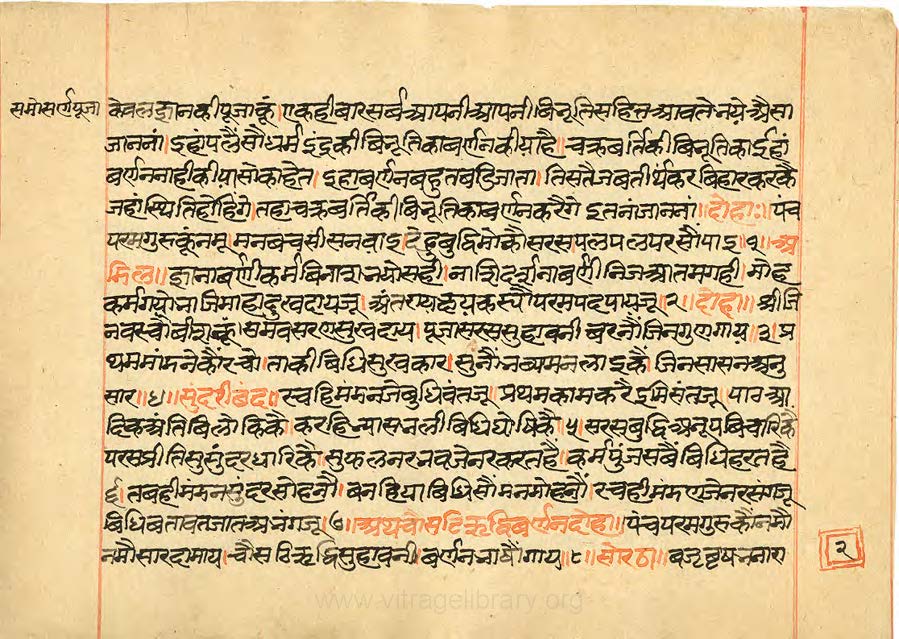 समोसर्णपूजा
केवलज्ञानकी पूजाकूं। एकहीबार सर्व आपनी आपनी बिभूति सहित आवते भये। अैसा
जाननां। इहां पलैं सौधर्म इंद्रकी बिभूति का बर्णन कीया है। चक्रबर्तिकी बिभूति का इहां
बर्णन नाही कीया सो काहेत। इहा बर्णन बहुत बढि जाता। तिसतै जब तीर्थकर बिहार करकै
जहां स्थिति होहिगे। तहा चक्रबर्तिकी बिभूति का बर्णन करैगे। इतनां जाननां।। दोहाः।। पंच
परमगुरु कूं नमू। मन बच सीस नवाइ। देहु बुद्धि मोकौ सरस पल पल परसौं पाइ।१। अ
डिल।। ज्ञानाबर्णी कर्म बिनाश भयो सही। नाशि दर्शनाबर्णी निज आतम गही। मोह
कर्म गयो भाजि माहादुखदाय जू। अंतराय क्षय कस्यौ परमपद पाय जू।२। दोहा।। श्रीजि
नवर चौबीश कूं। समवसरण सुखदाय। पूजा सरस सुहावनी बरनौं जिनगुण गाय।३। प्र
थम मांडनेकौं रचो। ताकी बिधि सुखकार। सुनौं भव्य मन लाइकैं। जिनसासन अनु
सार।।४। सुंदरीछंद।। रचहि मंडन जे बुधिवंत जू। प्रथम काम करै इमि संत जू। पाव आ
दिक अंति बिलोकिकै। करहि न्यास भली बिधि घोषिकै।५। सरस बुद्धि अनूप बिचारिकै
परस प्रीति सु सुंदर धारिकै। सुफल नरभव जे नर करत है। कर्मपुंज सबैं बिधि हरत है
६। तबही मंडन सुंदर सोहनौ। बन क्रिया बिधि सौं मनमोहनौं। रचही मंडण जे नर संग जू
बिधि बतावत जात अभंग जू।७।। अथ चौसठि ऋद्धि बर्णन दोहा।। पंच परमगुरु कौं नमौं
नमौ सारदा माय। चौसठि ऋद्धि सुहावनी। बर्णन भाषौं गाय।।८।। सोरठा।। बज्रबृषभनारा
२
www.vitragelibrary.org